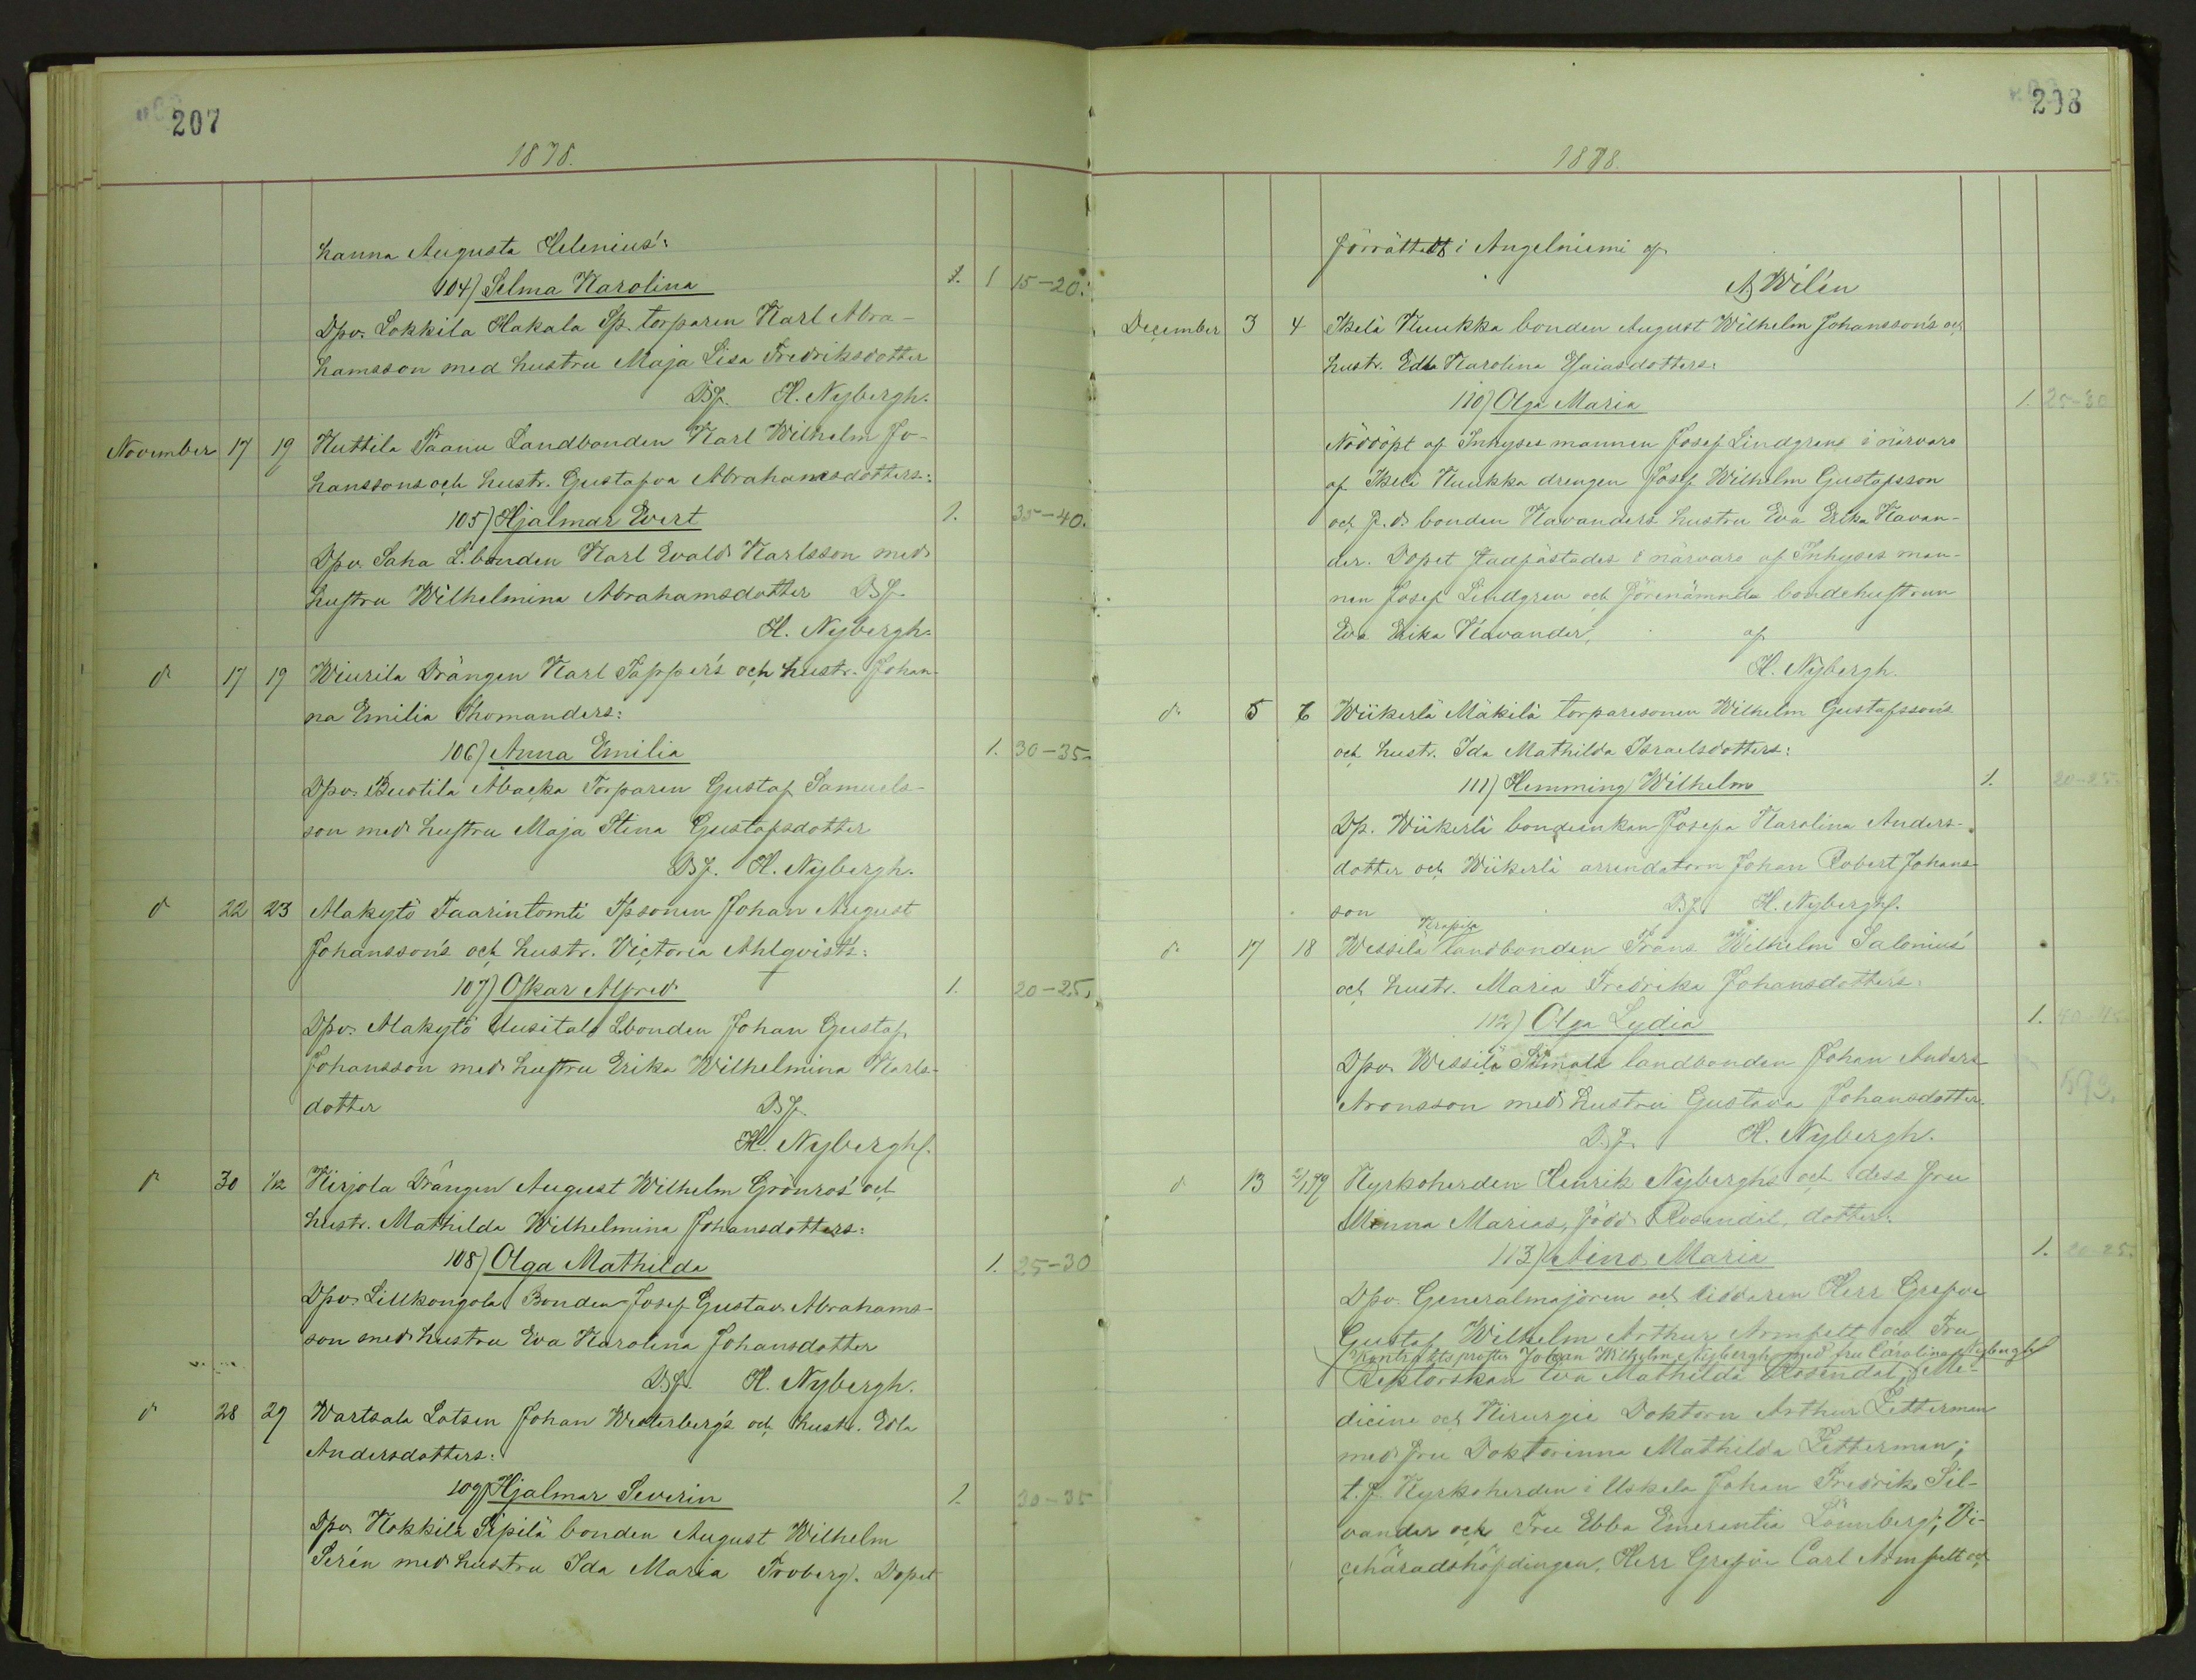 207
1878.
hanna Augusta Helenius':
104) Selma Karolina 1. 1 15-20.
Dpv. Lokkila Hakala Sp. torparen Karl Abra-
hamsson med hustru Maja Lisa Fredriksdotter
Dsf. H. Nybergh.
November 17 19 Kuttila Paanu Landbonden Karl Wilhelm Jo-
hanssons och hustr. Gustafva Abrahamsdotters:
105) Hjalmar Evert 1. 35-40.
Dpv. Saha L.bonden Karl Evald Karlsson med
hustru Wilhelmina Abrahamsdotter Dsf.
H. Nybergh.
d 17 19 Wiurila Drängen Karl Tapper's och hustr. Johan-
na Emilia Thomanders:
106) Anna Emilia 1. 30-35
Dpv. Buotila Abacka Torparen Gustaf Samuels-
son med hustru Maja Stina Gustafsdotter
Dsf. H. Nybergh.
d 22 23 Alakytö Taarintomti Tpsonen Johan August
Johansson's och hustr. Victoria Ahlqvist's:
107) Oskar Alfred 1. 20-25.
Dpv. Alakytö Uusitalo Lbonden Johan Gustaf
Johansson med hustru Erika Wilhelmina Karls-
dotter Dsf.
H. Nybergh.
d 30 1/12 Kirjola Drängen August Wilhelm Grönros' och
hustr. Mathilda Wilhelmina Johansdotters:
108) Olga Mathilda 1. 25-30
Dpv. Lillkongola Bonden Josef Gustav Abrahams-
son med hustru Eva Karolina Johansdotter
Dsf. H. Nybergh.
d 28 29 Wartsala Lotsen Johan Westerberg's och hustr. Edla
Andersdotters:
109) Hjalmar Severin 1. 30-35
Dpv. Kokkila Sipilä bonden August Wilhelm
Serén med hustru Ida Maria Froberg. Dopet
208
1878.
förrättadt i Angelniemi af
A Wilén
December 3 4 Ikelä Kuukka bonden August Wilhelm Johansson's och
hustr. Edla Karolina Esaiasdotters:
110) Olga Maria 1. 25-30
Nöddöpt af Inhyses mannen Josef Lindgrens i närvaro
af Ikelä Kuukka drengen Josef Wilhelm Gustafsson
och f.d. bonden Kavanders hustru Eva Erika Kavan-
der. Dopet stadfästades i närvaro af Inhyses man-
nen Josef Lindgren och förenämnda bondehustrun
Eva Erika Kavander, af
H. Nybergh.
d 5 6 Wiikerlä Mäkilä torparesonen Wilhelm Gustafsson's
och hustr. Ida Mathilda Israelsdotters:
111) Hemming Wilhelm 1. 20-25
Dp. Wiikerlä bondeenkan Josefa Karolina Anders-
dotter och Wiikerlä arrendatorn Johan Robert Johans-
son Dsf. H. Nybergh.
d 17 18 Wessilä landbonden Frans Wilhelm Salonius'
och hustr. Maria Fredrika Johansdotter's:
112) Olga Lydia 1. 40-45
Dpv. Wessilä landbonden Johan Anders
Aronsson med hustru Gustava Johansdotter.
593.
D.sf. H. Nybergh.
d 13 2/1 79 Kyrkoherden Henrik Nybergh's och dess fru
Minna Marias, född Rosendal, dotter:
113) Aino Maria 1. 20-25.
Dpv. Generalmajoren och riddaren Herr Grefve
Gustaf Wilhelm Arthur Armfelt och Fru
Kontraktsprosten Johan Wilhelm Nybergh med fru Carolina Nybergh
Rektorskan Eva Mathilda Rosendal; Me-
dicine och Kirurgie Doktorn Arthur Zetterman
med fru Doktorinna Mathilda Zetterman;
t.f. Kyrkoherden i Uskela Johan Fredrik Sil-
vander och Fru Ebba Emerentia Lönnberg; Vi-
cehäradshöfdingen, Herr Grefve Carl Armfelt och